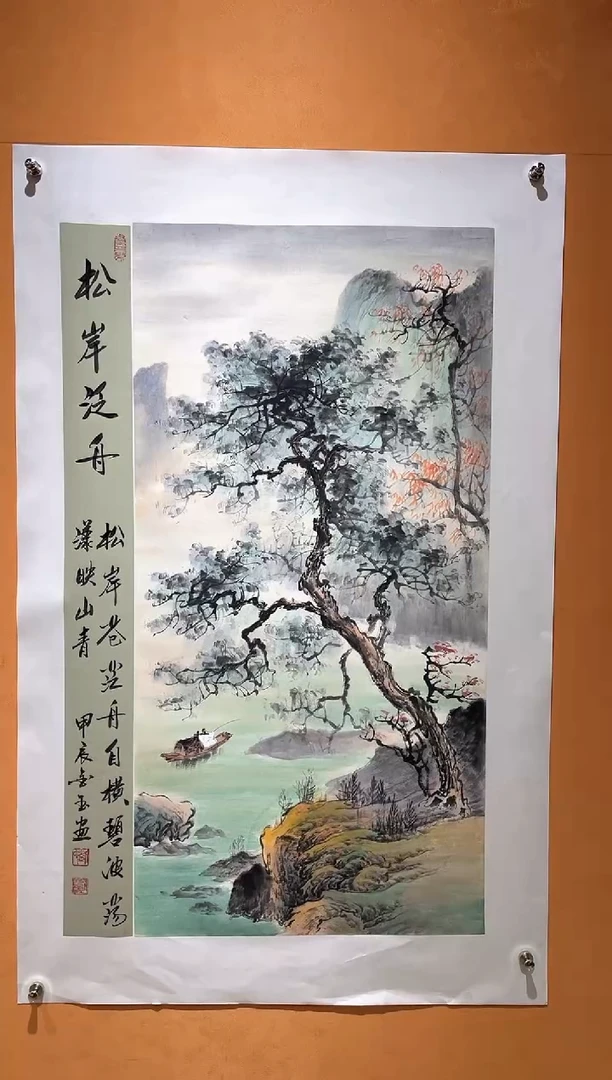 松岸泛舟
松岸苍茫舟自横碧波荡
漾映山青
甲辰金玉画